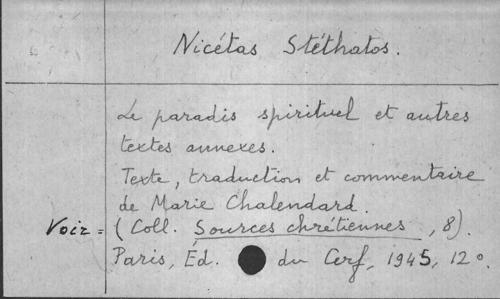 Nicétas Stéthatos.
Le paradis spirituel et autres
textes annexes.
Texte, traduction et commentaire
de Marie Chalendard.
Voir = (Coll. Sources chrétiennes, 8).
Paris, Éd. du Cerf, 1945, 12°.